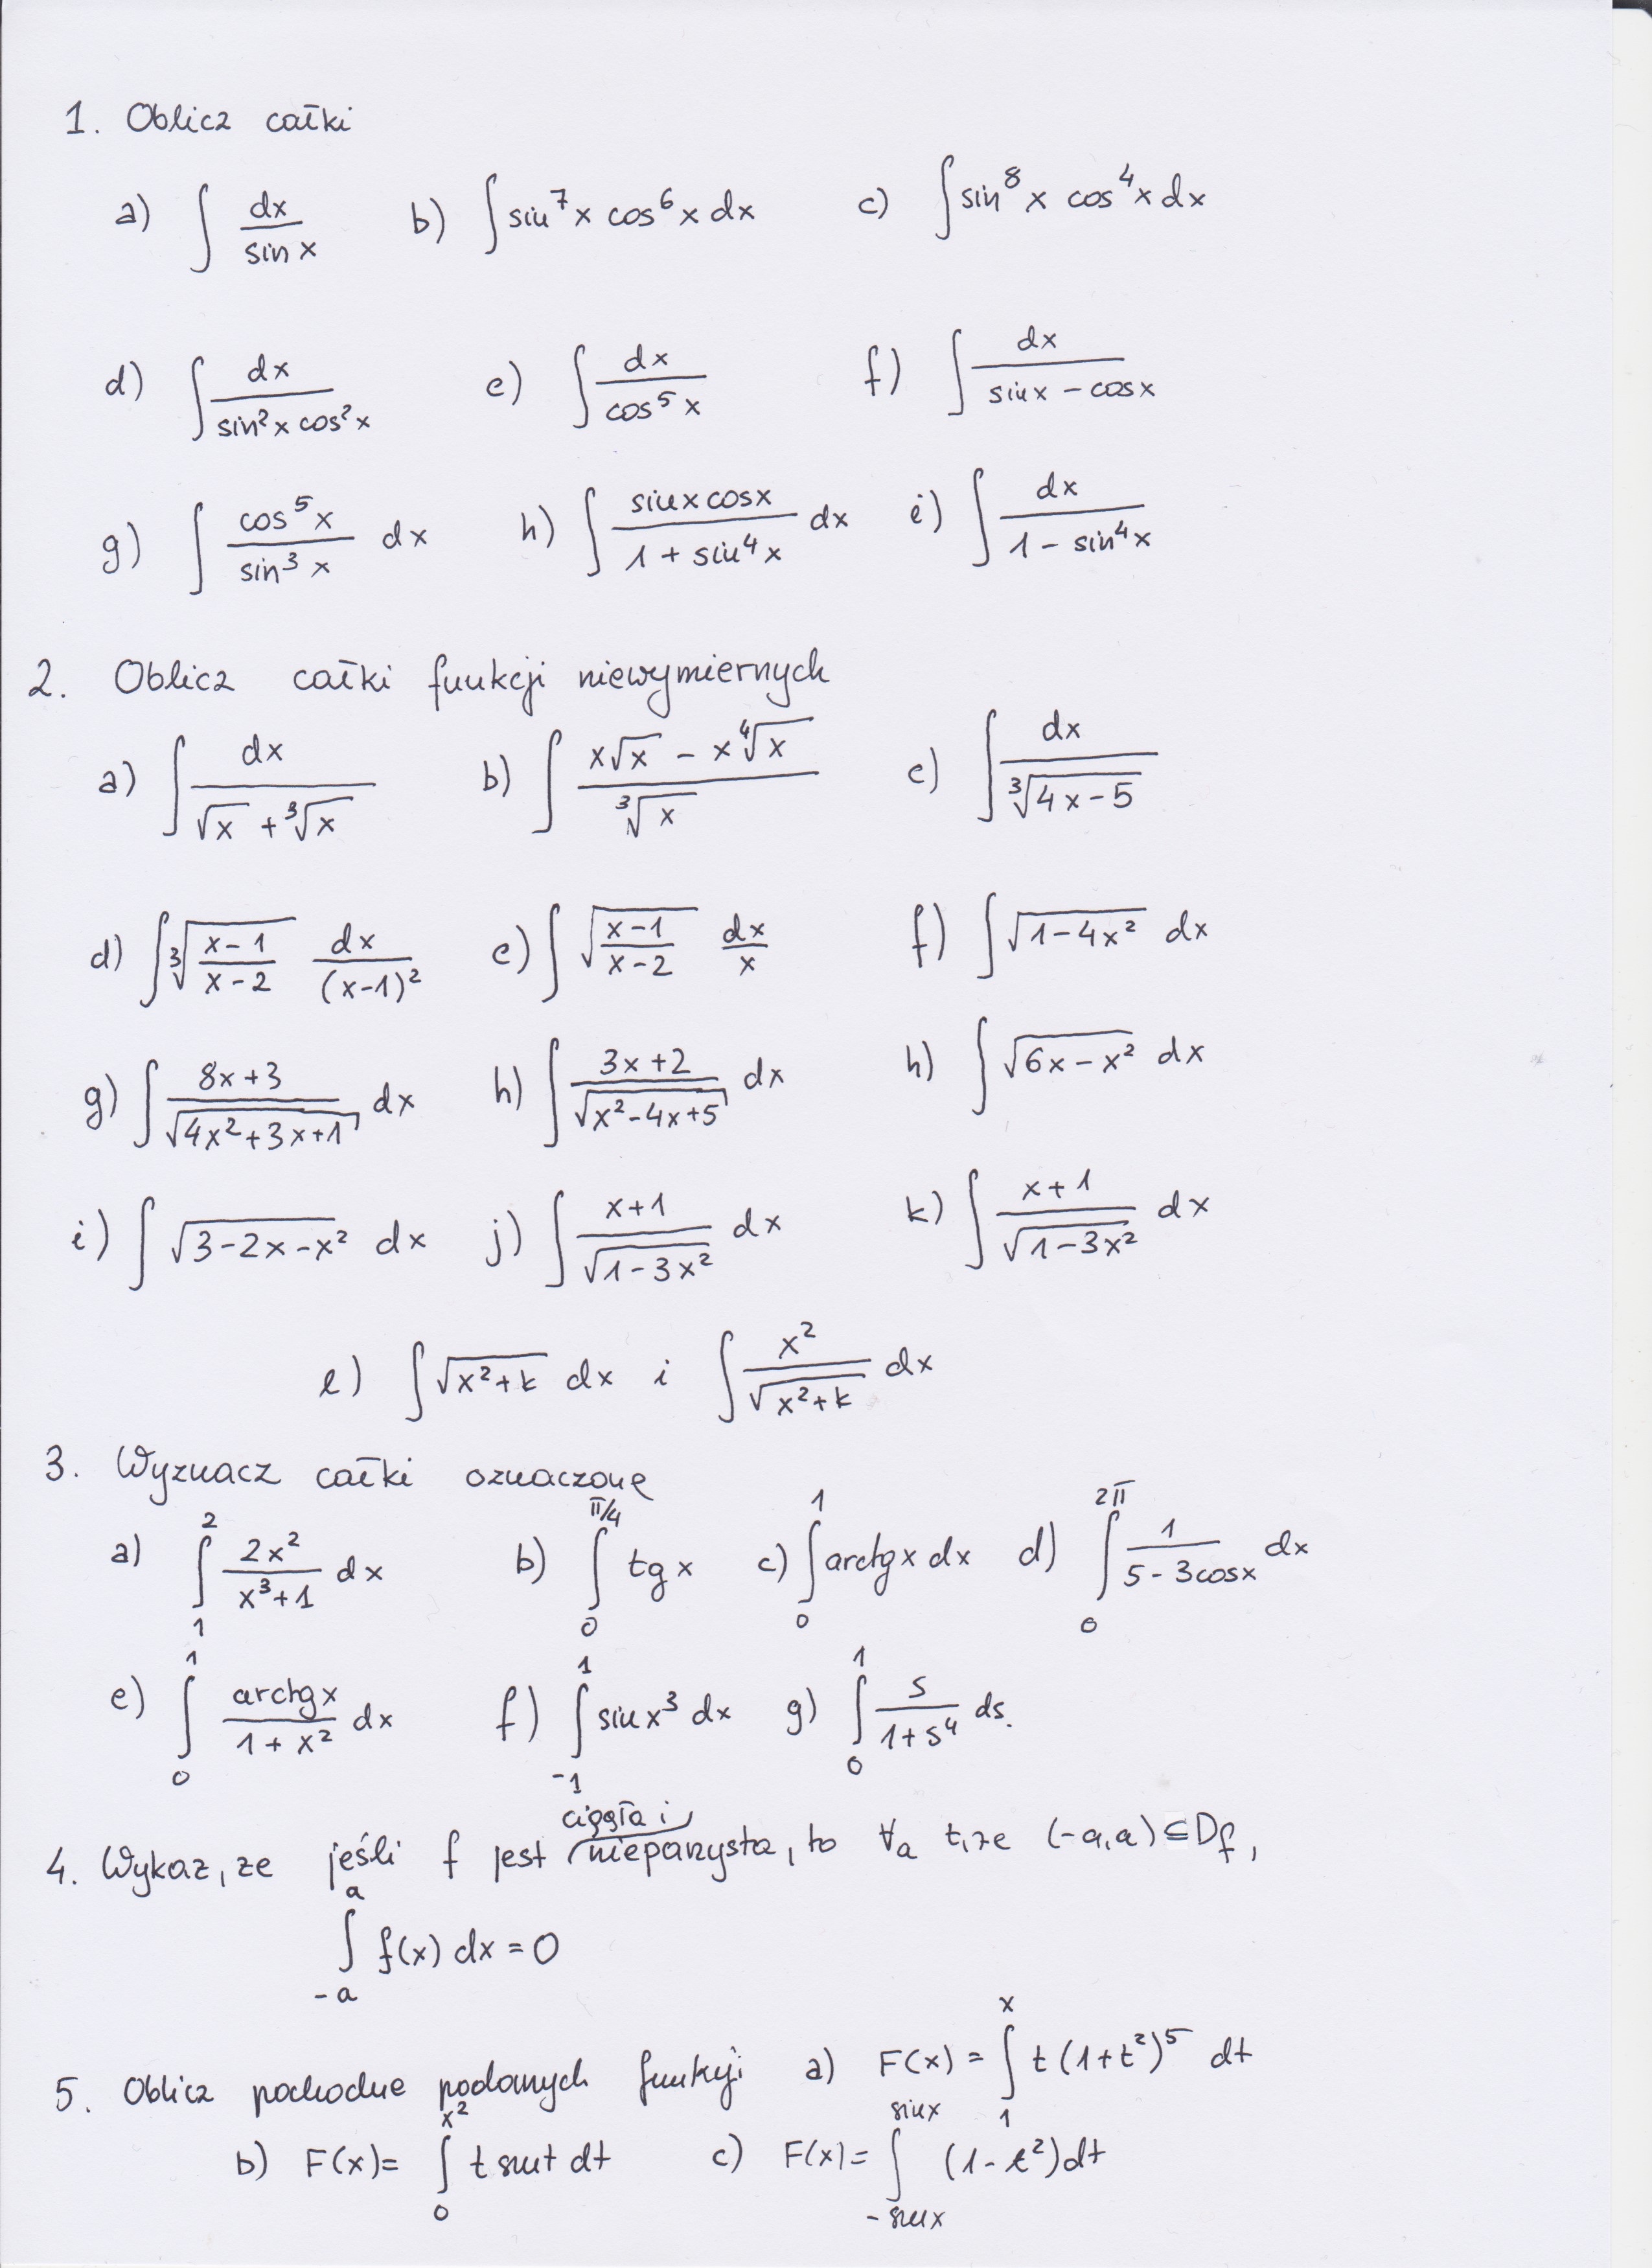 1. Oblicz całki
a) ∫ dx/sin x b) ∫ sin⁷x cos⁶x dx c) ∫ sin⁸x cos⁴x dx
d) ∫ dx/(sin²x cos²x) e) ∫ dx/cos⁵x f) ∫ dx/(sin x − cos x)
g) ∫ cos⁵x/sin³x dx h) ∫ (sin x cos x)/(1 + sin⁴x) dx i) ∫ dx/(1 − sin⁴x)
2. Oblicz całki funkcji niewymiernych
a) ∫ dx/(√x + ∛x) b) ∫ (x√x − x∜x)/∛x c) ∫ dx/∛(4x−5)
d) ∫ ∛((x−1)/(x−2)) dx/(x−1)² e) ∫ √((x−1)/(x−2)) dx/x f) ∫ √(1−4x²) dx
g) ∫ (8x+3)/√(4x²+3x+1) dx h) ∫ (3x+2)/√(x²−4x+5) dx h) ∫ √(6x−x²) dx
i) ∫ √(3−2x−x²) dx j) ∫ (x+1)/√(1−3x²) dx k) ∫ (x+1)/√(1−3x²) dx
l) ∫ √(x²+k) dx i ∫ x²/√(x²+k) dx
3. Wyznacz całki oznaczone
a) ∫₁² 2x²/(x³+1) dx b) ∫₀^(π/4) tg x c) ∫₀¹ arctg x dx d) ∫₀^(2π) 1/(5−3cosx) dx
e) ∫₀¹ arctg x/(1+x²) dx f) ∫₋₁¹ sin x³ dx g) ∫₀¹ s/(1+s⁴) ds.
4. Wykaż, że jeśli f jest ciągła i nieparzysta, to ∀a t,że (-a,a) ⊆ Df,
∫₋ₐᵃ f(x) dx = 0
5. Oblicz pochodne podanych funkcji a) F(x) = ∫₁ˣ t(1+t²)⁵ dt
b) F(x) = ∫₀^(x²) t sint dt c) F(x) = ∫₋sinx^(sinx) (1−t²)dt